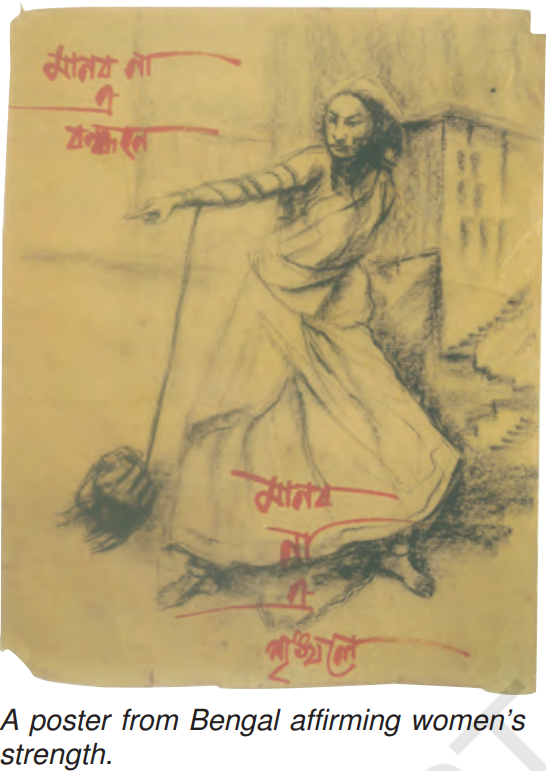 মানব না
এ
বন্ধনে
মানব
না
এ
শৃঙ্খলে
A poster from Bengal affirming women's
strength.